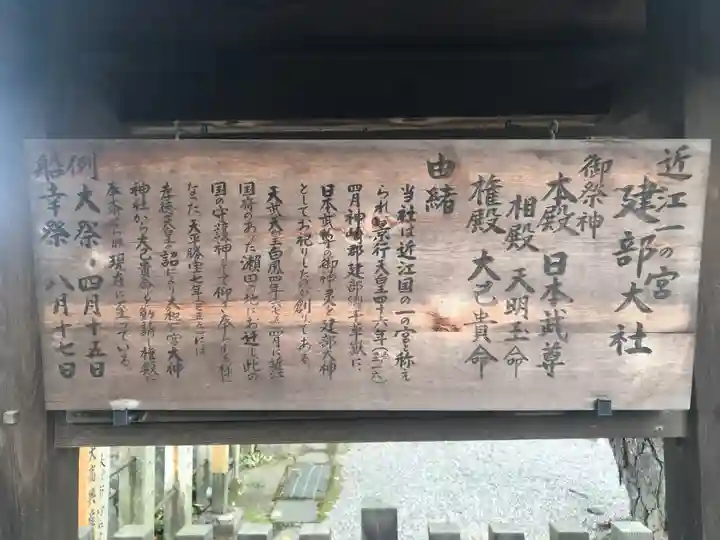 近江一の宮
建部大社
御祭神
本殿 日本武尊
相殿 天明玉命
権殿 大己貴命
由緒
当社は近江国の一の宮と称え
られ景行天皇四十六年(三一六)
四月神崎郡建部郷千草嶽に
日本武尊の御神霊を建部大神
としてお祀りしたのが創
りである
天武天皇白鳳四年(六七五)四月に当時
国府のあった瀬田の地にお遷し此の
国の守護神として御
なった 天平勝宝七年(七五五)には
孝徳天皇の詔により大和一宮大神
神社から大己貴命を勧請し権殿に
現在に至っている
例大祭・四月十五日
船幸祭 八月十七日